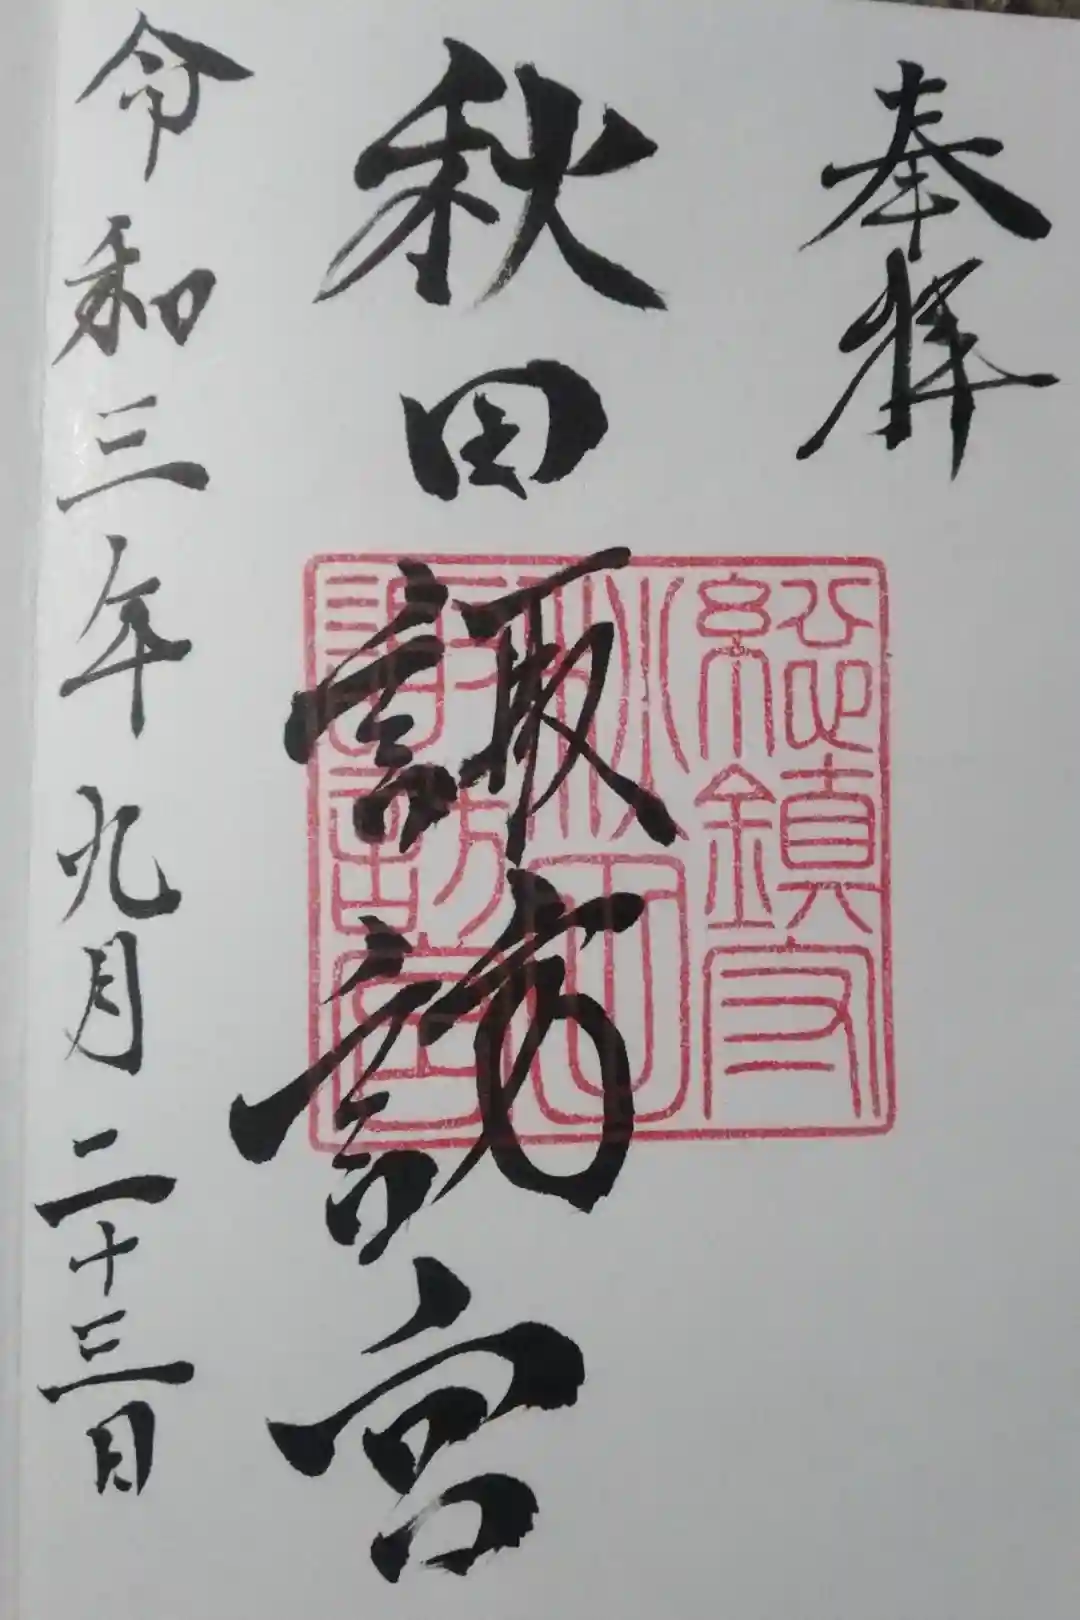 奉拝
秋田諏訪宮
総鎮守
秋田
諏訪宮
令和三年九月二十三日